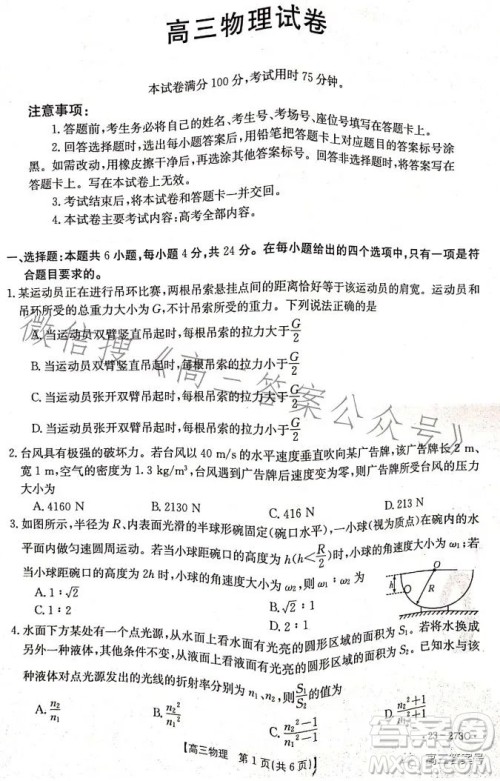 高三物理试卷
本试卷满分100分,考试用时75分钟。
注意事项:
1.答题前,考生务必将自己的姓名、考生号、考场号、座位号填写在答题卡上。
2.回答选择题时,选出每小题答案后,用铅笔把答题卡上对应题目的答案标号涂
黑。如需改动,用橡皮擦干净后,再选涂其他答案标号。回答非选择题时,将答案写在
答题卡上。写在本试卷上无效。
3.考试结束后,将本试卷和答题卡一并交回。
4.本试卷主要考试内容:高考全部内容。
一、选择题:本题共6小题,每小题4分,共24分。在每小题给出的四个选项中,只有一项是符
合题目要求的。
1.某运动员正在进行吊环比赛,两根吊索悬挂点间的距离恰好等于该运动员的肩宽。运动员和
吊环所受的总重力大小为G,不计吊索所受的重力。下列说法正确的是
A.当运动员双臂竖直吊起时,每根吊索的拉力大于G/2
B.当运动员双臂竖直吊起时,每根吊索的拉力小于G/2
C.当运动员张开双臂吊起时,每根吊索的拉力大于G/2
D.当运动员张开双臂吊起时,每根吊索的拉力小于G/2
2.台风具有极强的破坏力。若台风以40 m/s的水平速度垂直吹向某广告牌,该广告牌长2 m、
宽1 m,空气密度为1.3 kg/m³,台风遇到广告牌后速度立即减为零,则该广告牌所受台风的压力
大小为
A.4160 N B.2130 N C.416 N D.213 N
3.如图所示,半径为R、内表面光滑的半球形碗固定(碗口水平),一小球(视为质点)在碗内的水
平面内做匀速圆周运动。当小球距碗口的高度为h(h<R/2)时,小球的角速度大小为ω₁;若
小球距碗口的高度为2h时,小球的角速度大小为ω₂,则ω₁:ω₂为
A.1:√2 B.√2:1
C.1:2 D.2:1
O
h
R
4.水面下方某处有一个点光源,从水面上看有光射出的圆形区域的面积为S₁。若将水换成
另外一种液体,其他条件不变,从液面上看有光射出的圆形区域的面积为S₂。已知水与该
种液体对点光源发出的光线的折射率分别为n₁、n₂,则S₁/S₂的值为
A.n₂/n₁ B.n₂²/n₁² C.(n₂²-1)/(n₁²-1) D.(n₂²+1)/(n₁²+1)
【高三物理 第1页(共6页)】
·23-273C·
微信搜《高三答案公众号》
高三答案号